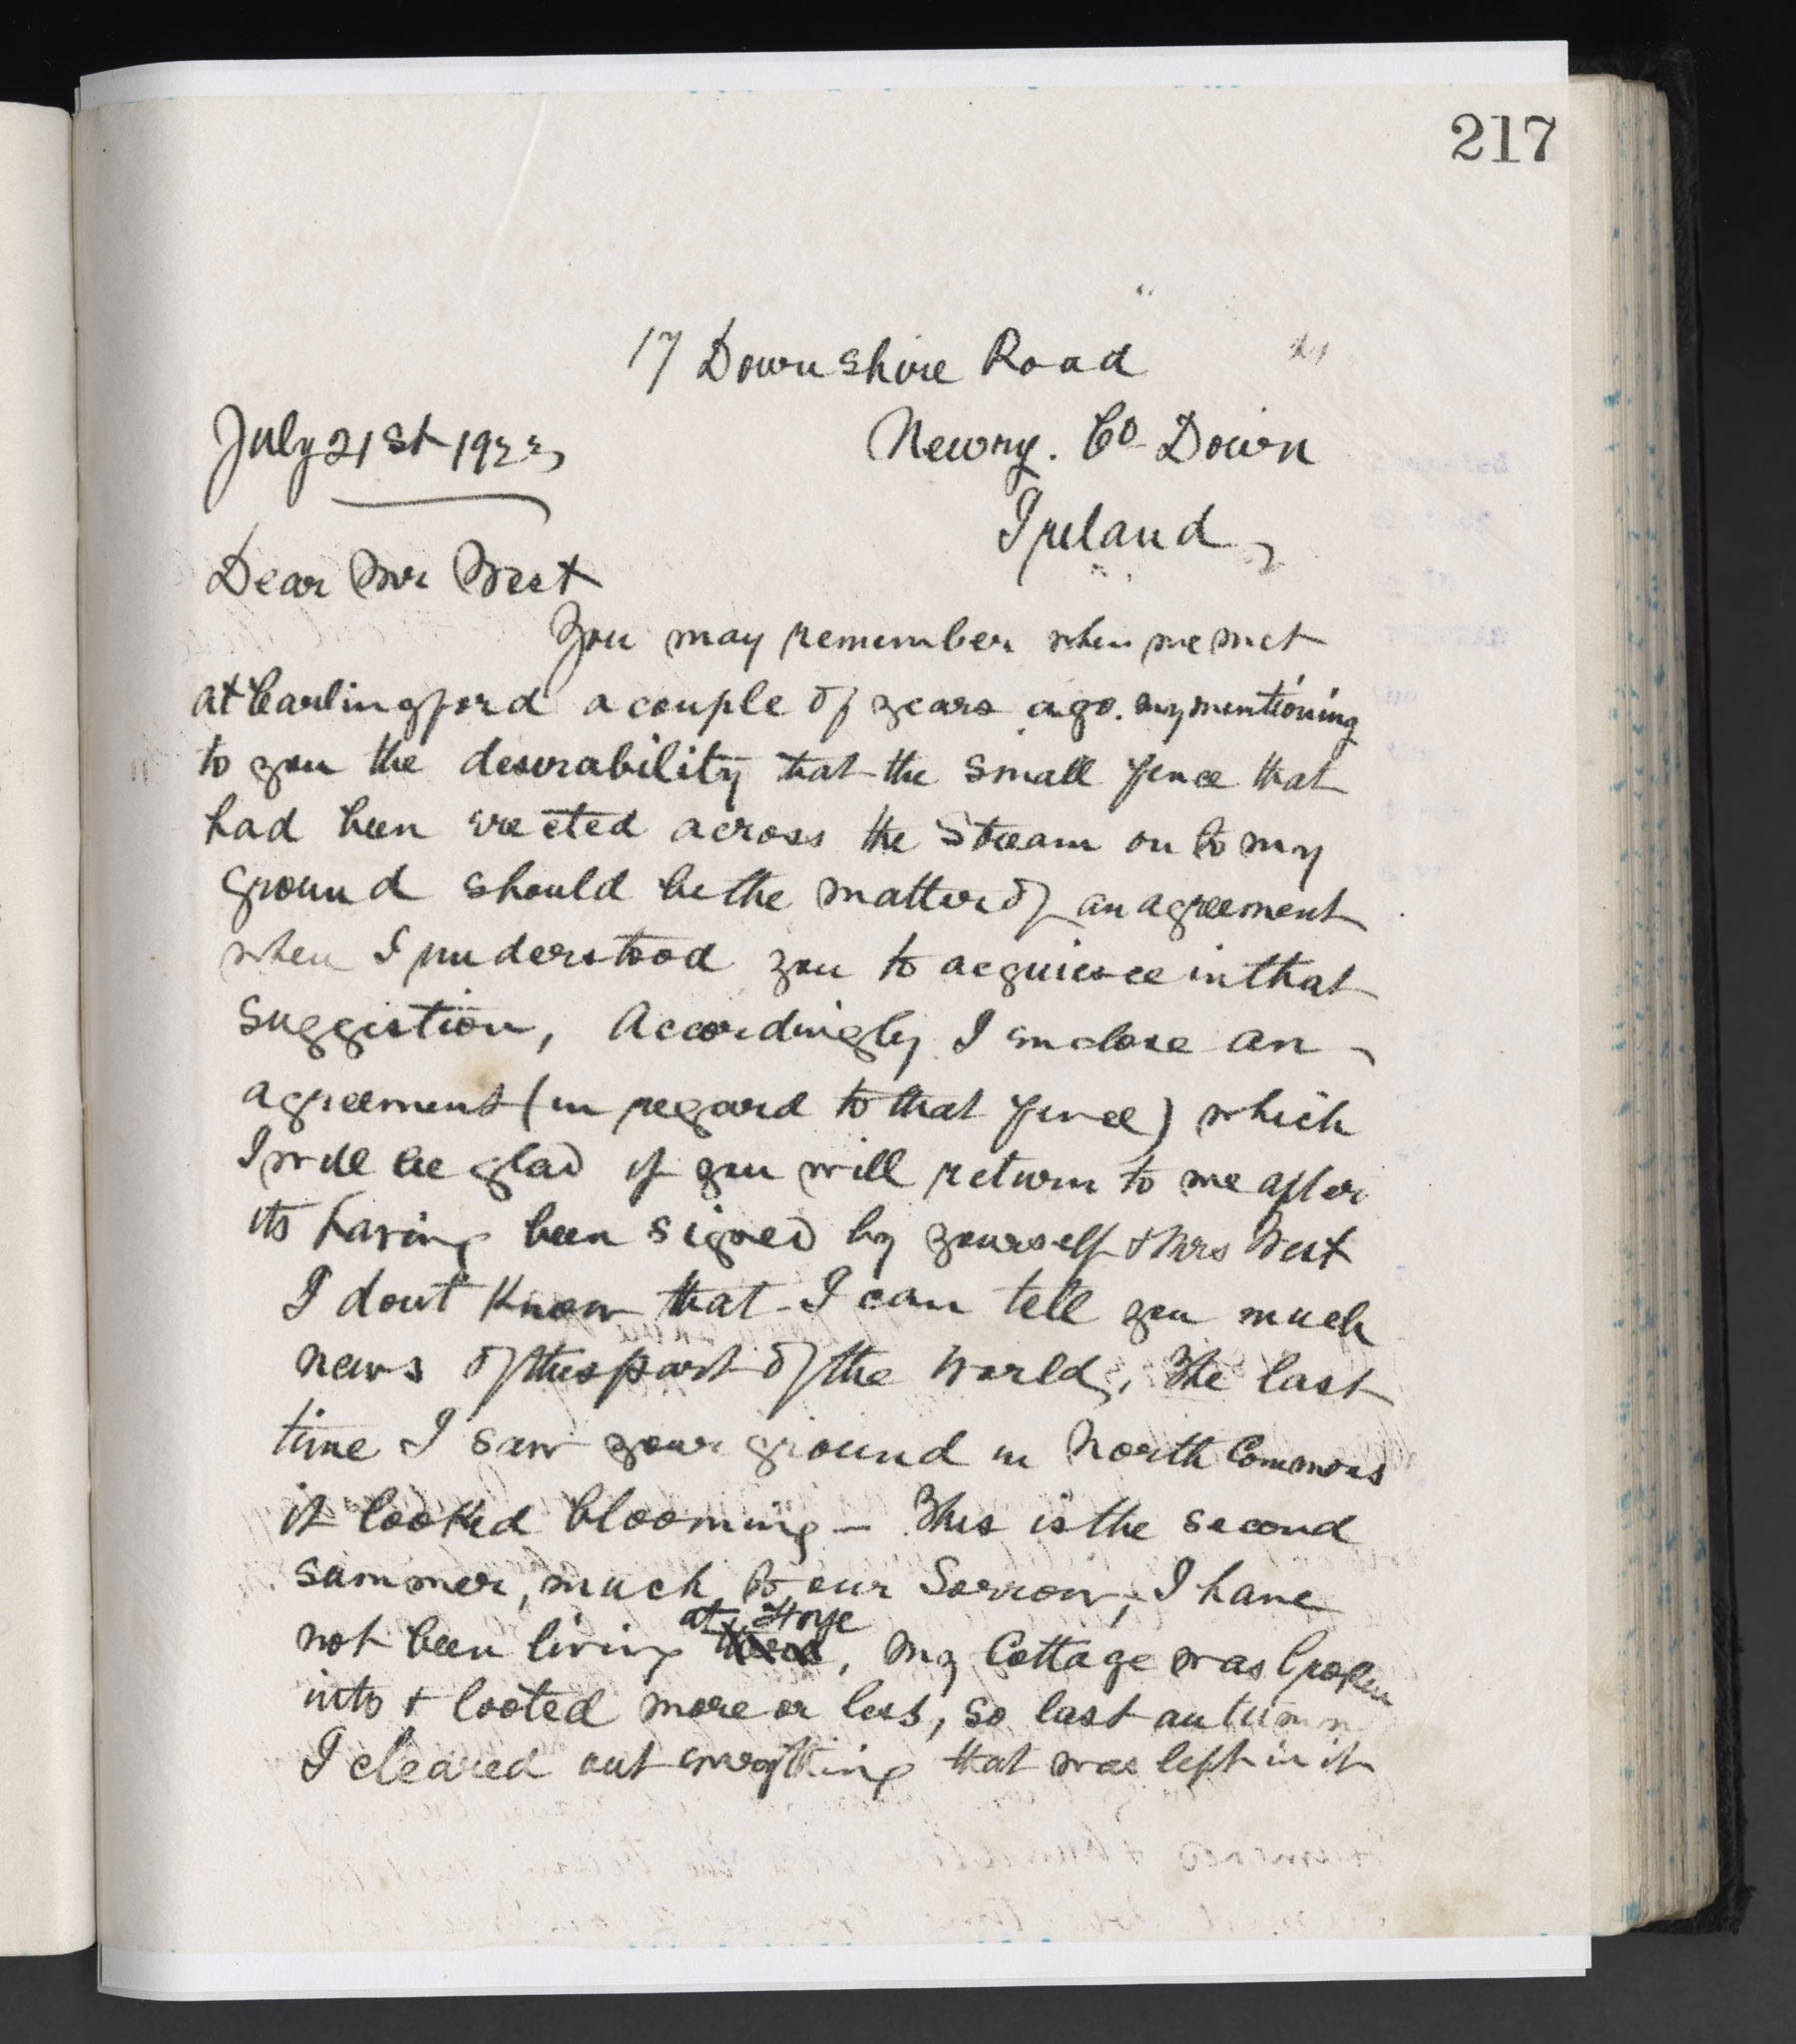 217
17 Downshire Road
July 21st 1923
Newry. Co Down
Ireland
Dear Mr West
You may remember when we met
at Carlingford a couple of years ago. my mentioning
to you the desirability that the small fence that
had been erected across the Stream on to my
ground should be the matter of an agreement
when I understood you to acquiesce in that
suggestion, Accordingly I enclose an
agreement (in regard to that fence) which
I will be glad if you will return to me after
its having been signed by yourself & Mrs West
I dont know that I can tell you much
news of this part of the World, The last
time I saw your ground in North Commons
it looked blooming — This is the second
summer, much to our Sorrow, I have
at
not been living, my Cottage was broken
into & looted more or less, so last autumn
I cleared out everything that was left in it